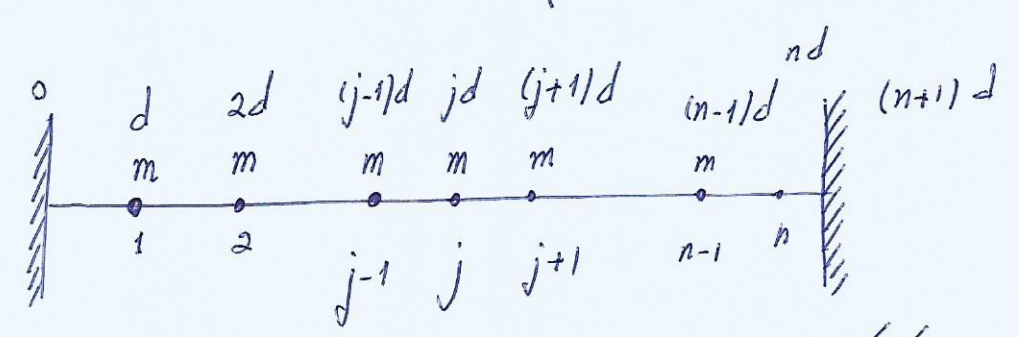 nd
0 d 2d (j-1)d jd (j+1)d (n-1)d (n+1)d
m m m m m m
1 2 j-1 j j+1 n-1 n